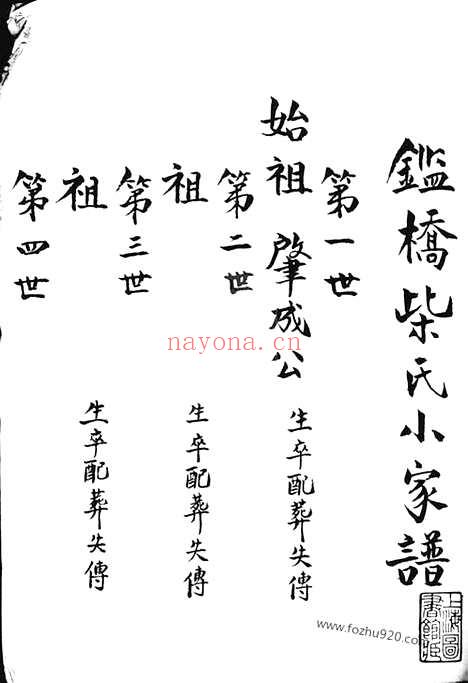 鑑橋柴氏小家譜
第一世
始祖肇成公 生卒配葬失傳
第二世
祖 生卒配葬失傳
第三世
祖 生卒配葬失傳
第四世
上海圖書館藏
nayona.cn
www.fozhu920.com